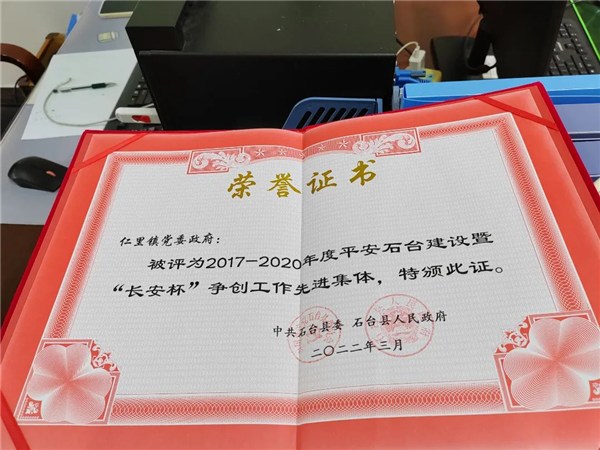 荣誉证书
仁里镇党委政府：
被评为2017-2020年度平安石台建设暨
“长安杯”争创工作先进集体，特颁此证。
中共石台县委 石台县人民政府
二〇二二年三月